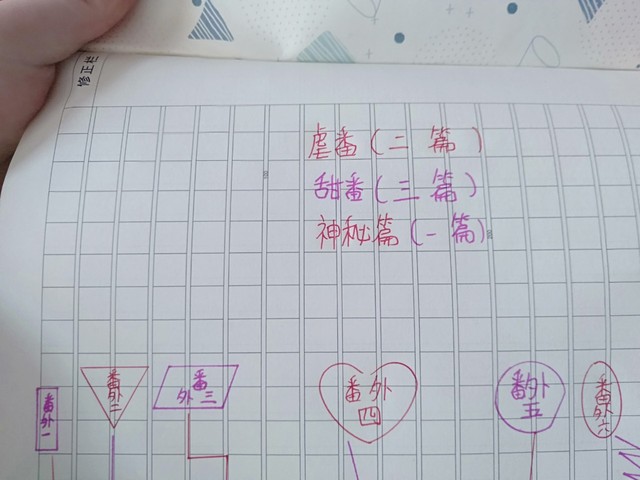 修正栏
虐番(二篇)
甜番(三篇)
神秘篇(一篇)
番外一
番外二
番外三
番外四
番外五
番外六